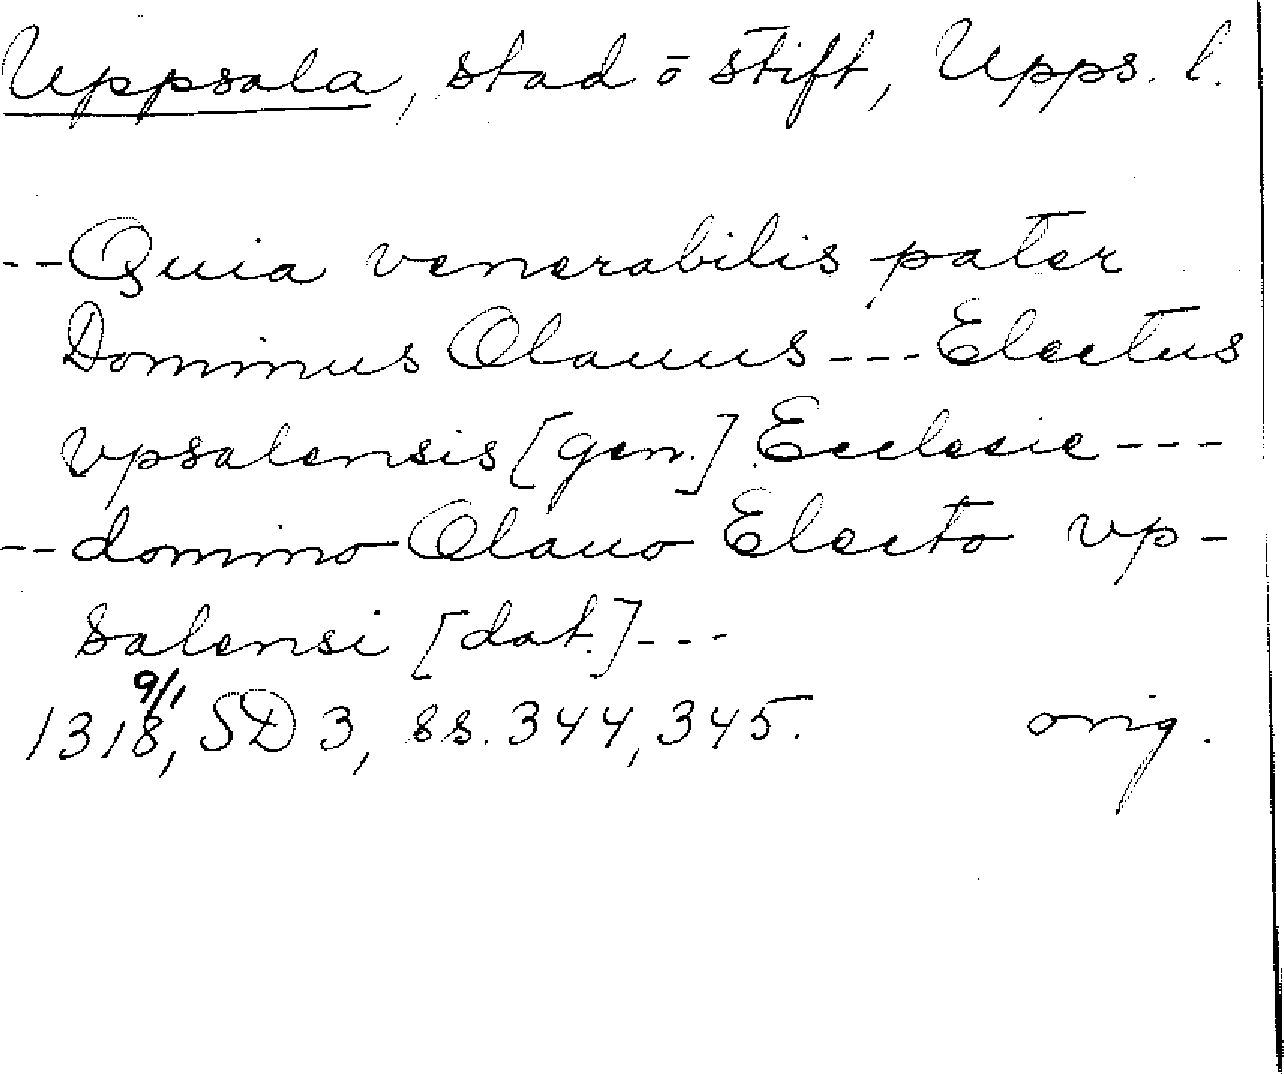 Uppsala, stad ō stift, Upps. l.
-- Quia venerabilis pater
Dominus Olauus --- Electus
vpsalensis [gen.] Ecclesie ---
-- domino Olauo Electo vp-
salensi [dat.] ---
1318 9/1, SD 3, ss. 344, 345. orig.